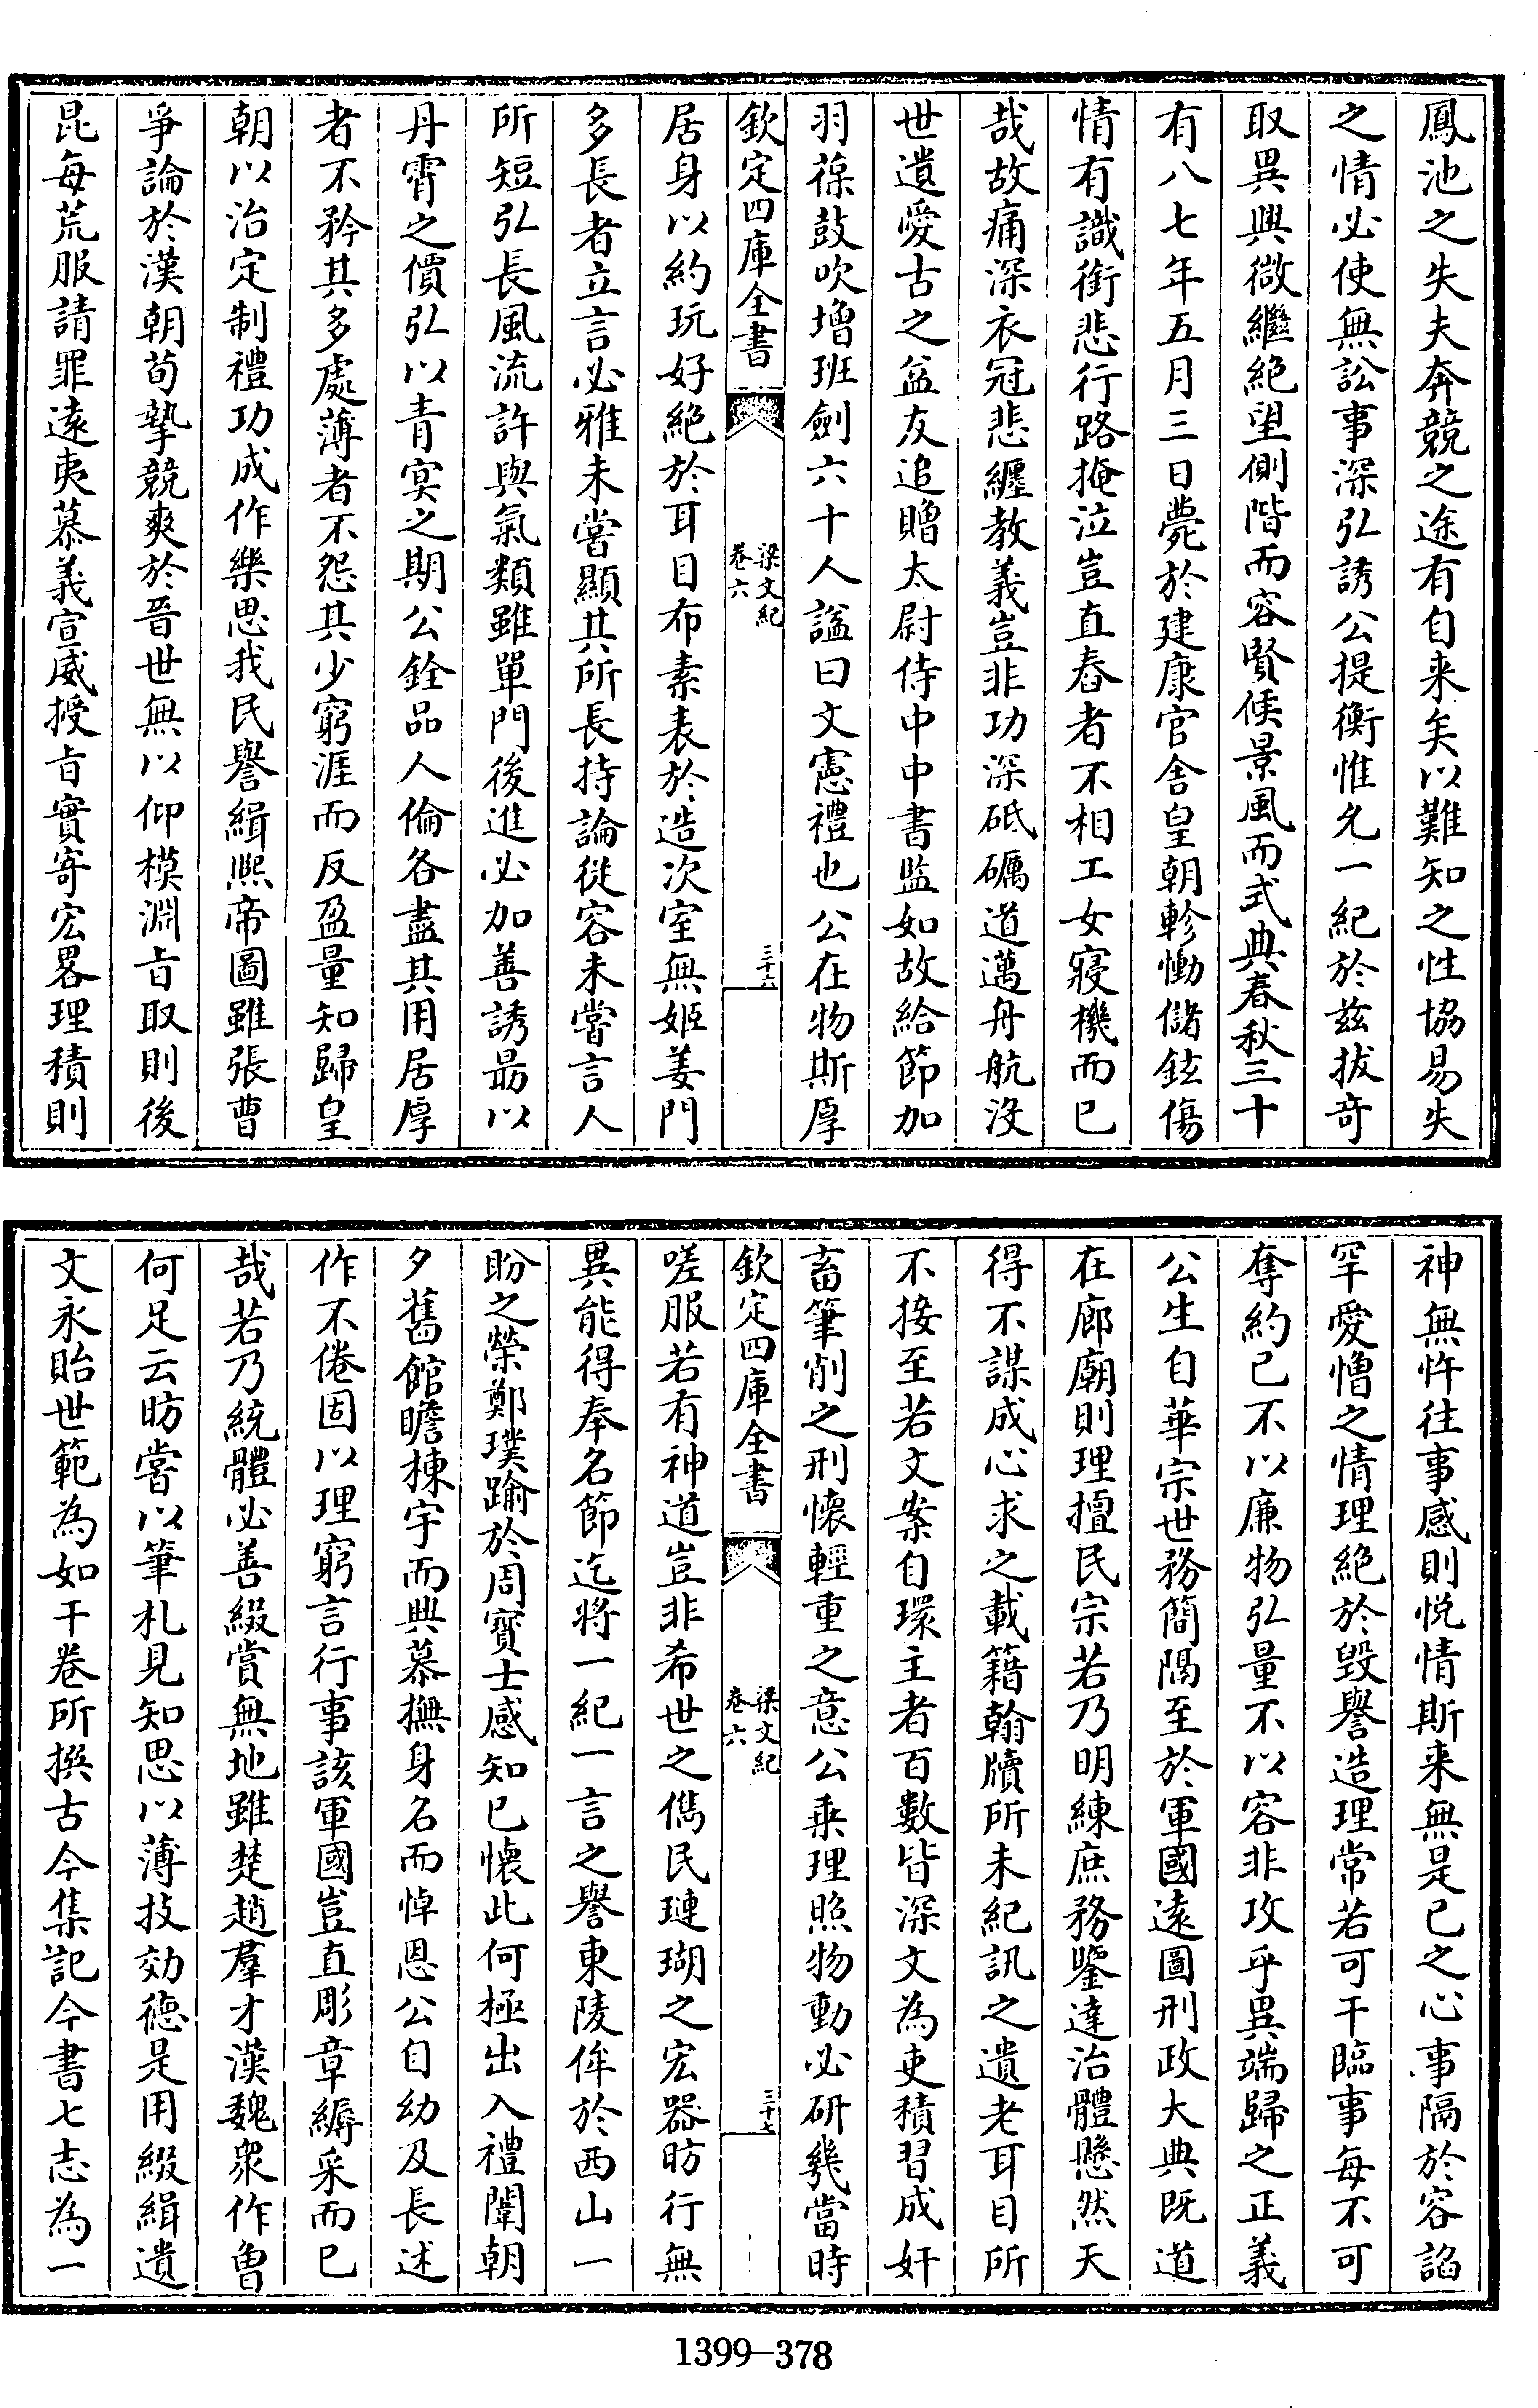 鳳池之失夫奔競之途有自来矣以難知之性協易失
之情必使無訟事深弘誘公提衡惟允一紀於兹拔竒
取異興微繼絶望側階而容賢候景風而式典春秋三十
有八七年五月三日薨於建康官舎皇朝軫慟儲鉉傷
情有識銜悲行路掩泣豈直舂者不相工女寝機而已
哉故痛深衣冠悲纏教義豈非功深砥礪道邁舟航没
世遺愛古之益友追贈太尉侍中中書監如故給節加
羽葆鼓吹增班劒六十人諡曰文憲禮也公在物斯厚
欽定四庫全書
梁文紀
卷六
三十六
居身以約玩好絶於耳目布素表於造次室無姬姜門
多長者立言必雅未嘗顯其所長持論從容未嘗言人
所短弘長風流許與氣類雖單門後進必加善誘朂以
丹霄之價弘以青冥之期公銓品人倫各盡其用居厚
者不矜其多處薄者不怨其少窮涯而反盈量知歸皇
朝以治定制禮功成作樂思我民譽緝熙帝圖雖張曹
爭論於漢朝荀摯競爽於晉世無以仰模淵㫖取則後
昆每荒服請罪逺夷慕義宣威授㫖實寄宏畧理積則
神無忤往事感則悦情斯来無是已之心事隔於容諂
罕愛憎之情理絶於毀譽造理常若可干臨事每不可
奪約已不以廉物弘量不以容非攻乎異端歸之正義
公生自華宗世務簡隔至於軍國逺圖刑政大典既道
在廊廟則理擅民宗若乃明練庶務鑒達治體懸然天
得不謀成心求之載籍翰牘所未紀訊之遺老耳目所
不接至若文案自環主者百數皆深文為吏積習成奸
畜筆削之刑懷輕重之意公乗理照物動必研幾當時
欽定四庫全書
梁文紀
卷六
三十七
嗟服若有神道豈非希世之儁民瑚璉之宏器昉行無
異能得奉名節迄將一紀一言之譽東陵侔於西山一
盼之榮鄭璞踰於周寳士感知已懷此何極出入禮闈朝
夕舊館瞻棟宇而興慕撫身名而悼恩公自幼及長述
作不倦固以理窮言行事該軍國豈直彫章縟采而已
哉若乃統體必善綴賞無地雖楚趙羣才漢魏衆作曽
何足云昉嘗以筆札見知思以薄技効德是用綴緝遺
文永貽世範為如干卷所撰古今集記今書七志為一
1399—378